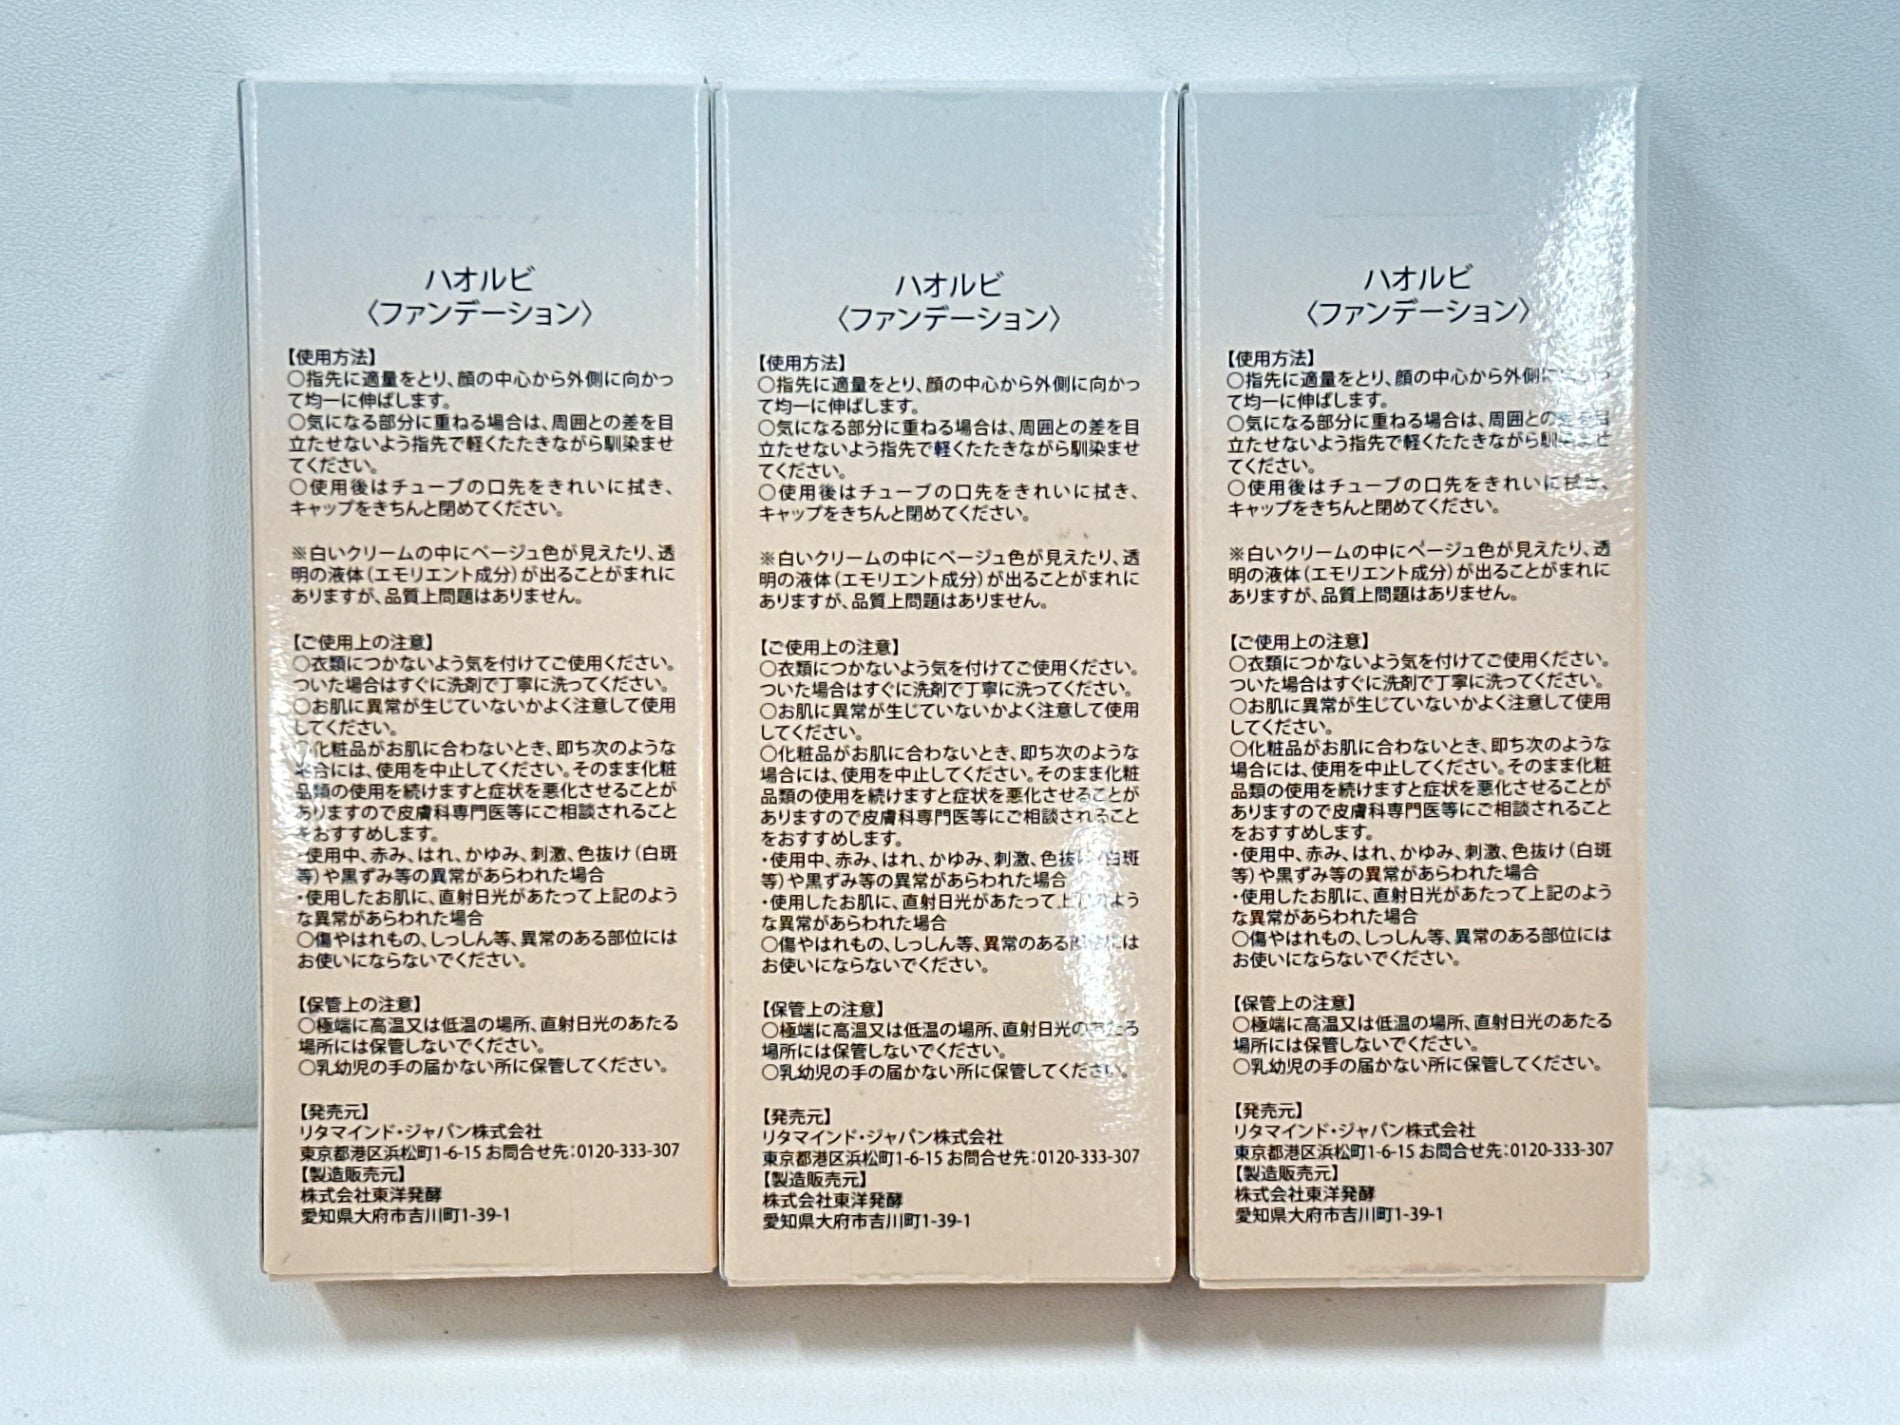 ハオルビ
〈ファンデーション〉
【使用方法】
○指先に適量をとり、顔の中心から外側に向かっ
て均一に伸ばします。
○気になる部分に重ねる場合は、周囲との差を目
立たせないよう指先で軽くたたきながら馴染ませ
てください。
○使用後はチューブの口先をきれいに拭き、
キャップをきちんと閉めてください。
※白いクリームの中にベージュ色が見えたり、透
明の液体（エモリエント成分）が出ることがまれに
ありますが、品質上問題はありません。
【ご使用上の注意】
○衣類につかないよう気を付けてご使用ください。
ついた場合はすぐに洗剤で丁寧に洗ってください。
○お肌に異常が生じていないかよく注意して使用
してください。
○化粧品がお肌に合わないとき、即ち次のような
場合には、使用を中止してください。そのまま化粧
品類の使用を続けますと症状を悪化させることが
ありますので皮膚科専門医等にご相談されること
をおすすめします。
・使用中、赤み、はれ、かゆみ、刺激、色抜け（白斑
等）や黒ずみ等の異常があらわれた場合
・使用したお肌に、直射日光があたって上記のよう
な異常があらわれた場合
○傷やはれもの、しっしん等、異常のある部位には
お使いにならないでください。
【保管上の注意】
○極端に高温又は低温の場所、直射日光のあたる
場所には保管しないでください。
○乳幼児の手の届かない所に保管してください。
【発売元】
リタマインド・ジャパン株式会社
東京都港区浜松町1-6-15 お問合せ先：0120-333-307
【製造販売元】
株式会社東洋発酵
愛知県大府市吉川町1-39-1
ハオルビ
〈ファンデーション〉
【使用方法】
○指先に適量をとり、顔の中心から外側に向かっ
て均一に伸ばします。
○気になる部分に重ねる場合は、周囲との差を目
立たせないよう指先で軽くたたきながら馴染ませ
てください。
○使用後はチューブの口先をきれいに拭き、
キャップをきちんと閉めてください。
※白いクリームの中にベージュ色が見えたり、透
明の液体（エモリエント成分）が出ることがまれに
ありますが、品質上問題はありません。
【ご使用上の注意】
○衣類につかないよう気を付けてご使用ください。
ついた場合はすぐに洗剤で丁寧に洗ってください。
○お肌に異常が生じていないかよく注意して使用
してください。
○化粧品がお肌に合わないとき、即ち次のような
場合には、使用を中止してください。そのまま化粧
品類の使用を続けますと症状を悪化させることが
ありますので皮膚科専門医等にご相談されること
をおすすめします。
・使用中、赤み、はれ、かゆみ、刺激、色抜け（白斑
等）や黒ずみ等の異常があらわれた場合
・使用したお肌に、直射日光があたって上記のよう
な異常があらわれた場合
○傷やはれもの、しっしん等、異常のある部位には
お使いにならないでください。
【保管上の注意】
○極端に高温又は低温の場所、直射日光のあたる
場所には保管しないでください。
○乳幼児の手の届かない所に保管してください。
【発売元】
リタマインド・ジャパン株式会社
東京都港区浜松町1-6-15 お問合せ先：0120-333-307
【製造販売元】
株式会社東洋発酵
愛知県大府市吉川町1-39-1
ハオルビ
〈ファンデーション〉
【使用方法】
○指先に適量をとり、顔の中心から外側に向かっ
て均一に伸ばします。
○気になる部分に重ねる場合は、周囲との差を目
立たせないよう指先で軽くたたきながら馴染ませ
てください。
○使用後はチューブの口先をきれいに拭き、
キャップをきちんと閉めてください。
※白いクリームの中にベージュ色が見えたり、透
明の液体（エモリエント成分）が出ることがまれに
ありますが、品質上問題はありません。
【ご使用上の注意】
○衣類につかないよう気を付けてご使用ください。
ついた場合はすぐに洗剤で丁寧に洗ってください。
○お肌に異常が生じていないかよく注意して使用
してください。
○化粧品がお肌に合わないとき、即ち次のような
場合には、使用を中止してください。そのまま化粧
品類の使用を続けますと症状を悪化させることが
ありますので皮膚科専門医等にご相談されること
をおすすめします。
・使用中、赤み、はれ、かゆみ、刺激、色抜け（白斑
等）や黒ずみ等の異常があらわれた場合
・使用したお肌に、直射日光があたって上記のよう
な異常があらわれた場合
○傷やはれもの、しっしん等、異常のある部位には
お使いにならないでください。
【保管上の注意】
○極端に高温又は低温の場所、直射日光のあたる
場所には保管しないでください。
○乳幼児の手の届かない所に保管してください。
【発売元】
リタマインド・ジャパン株式会社
東京都港区浜松町1-6-15 お問合せ先：0120-333-307
【製造販売元】
株式会社東洋発酵
愛知県大府市吉川町1-39-1